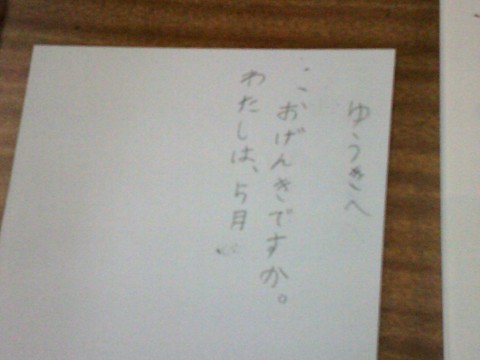 ゆうきへ
おげんきですか。
わたしは、5月